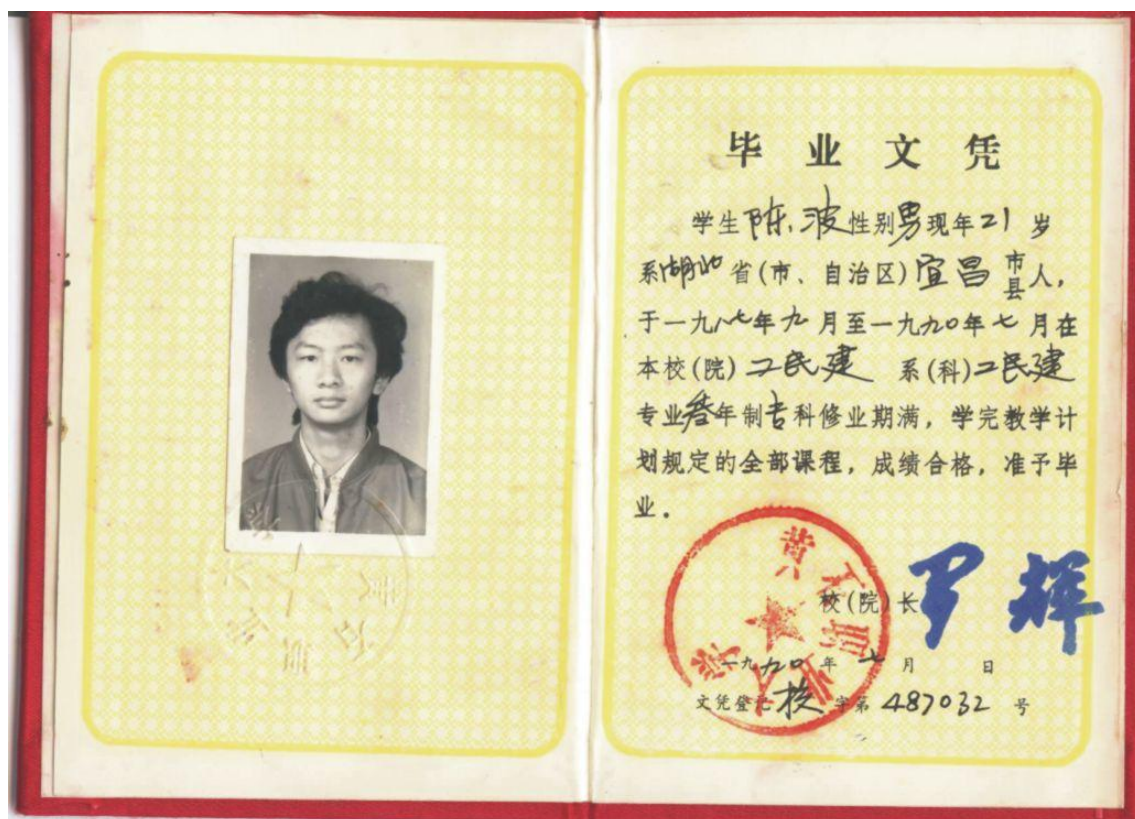 毕业文凭
学生陈波性别男现年21岁
系湖北省(市、自治区)宜昌市县人,
于一九八七年九月至一九九〇年七月在
本校(院)工民建 系(科)工民建
专业叁年制专科修业期满,学完教学计
划规定的全部课程,成绩合格,准予毕
业.
黄石职业大学
校(院)长 罗辉
一九九〇年七月 日
文凭登记校字第487032号
黄石职业大学